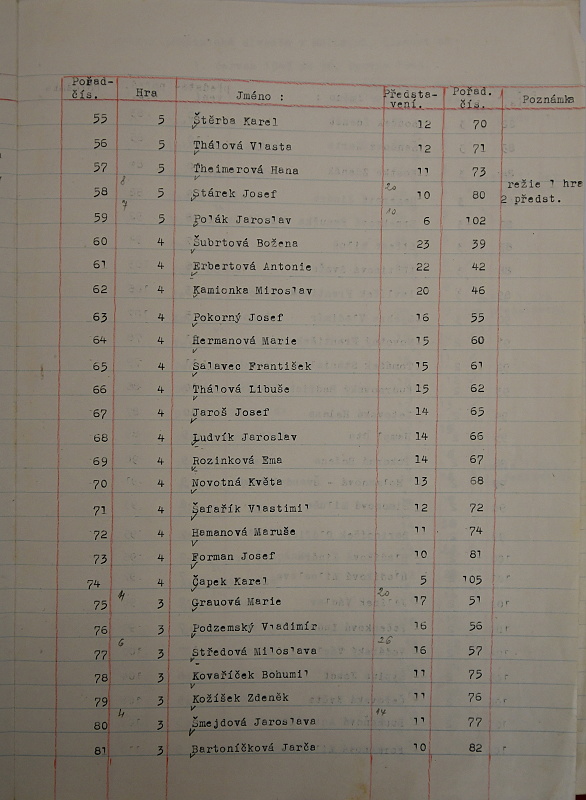 Pořad- čís. Hra Jméno : Představení. Pořad. čís. Poznámka
55 5 Štěrba Karel 12 70
56 5 Thálová Vlasta 12 71
57 5 Theimerová Hana 11 73
8 20 režie 1 hra
58 5 Stárek Josef 10 80 2 předst.
7 10
59 5 Polák Jaroslav 6 102
60 4 Šubrtová Božena 23 39
61 4 Erbertová Antonie 22 42
62 4 Kamionka Miroslav 20 46
63 4 Pokorný Josef 16 55
64 4 Hermanová Marie 15 60
65 4 Salavec František 15 61
66 4 Thálová Libuše 15 62
67 4 Jaroš Josef 14 65
68 4 Ludvík Jaroslav 14 66
69 4 Rozinková Ema 14 67
70 4 Novotná Květa 13 68
71 4 Šafařík Vlastimil 12 72
72 4 Hamanová Maruše 11 74
73 4 Forman Josef 10 81
74 4 Čapek Karel 5 105
4 20
75 3 Grauová Marie 17 51
76 3 Podzemský Vladimír 16 56
6 26
77 3 Středová Miloslava 16 57
78 3 Kovaříček Bohumil 11 75
79 3 Kožíšek Zdeněk 11 76
4 14
80 3 Šmejdová Jaroslava 11 77
81 3 Bartoníčková Jarča 10 82